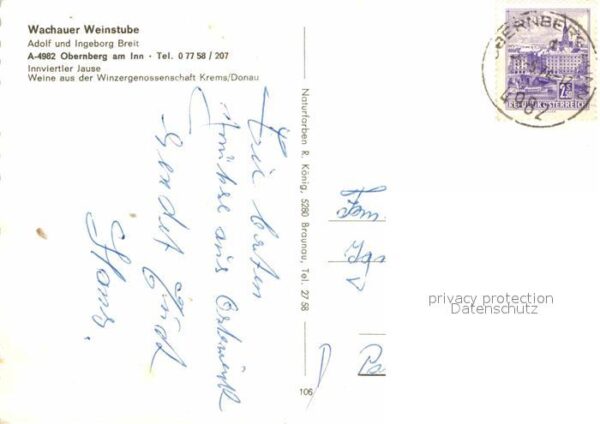 Wachauer Weinstube
Adolf und Ingeborg Breit
A-4982 Obernberg am Inn · Tel. 0 77 58 / 207
Innviertler Jause
Weine aus der Winzergenossenschaft Krems/Donau
Die besten
Grüße aus Österreich
sendet Euch
Hans.
Naturfarben R. König, 5280 Braunau, Tel. 27 58
106
Fam.
OBERNBERG
4982
REPUBLIK ÖSTERREICH
privacy protection
Datenschutz